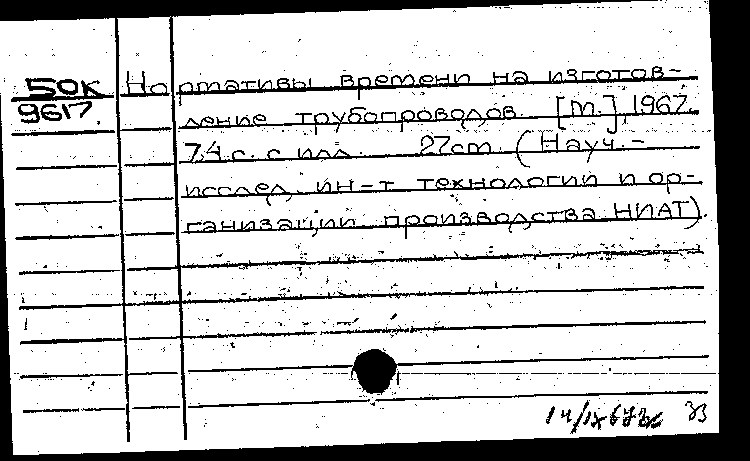 50К Нормативы времени на изготов-
9617. ление трубопроводов. [М.], 1967.
74 с. с илл. 27cm. (Науч.-
исслед. ин-т технологии и ор-
ганизации производства НИАТ).
14/IX 67